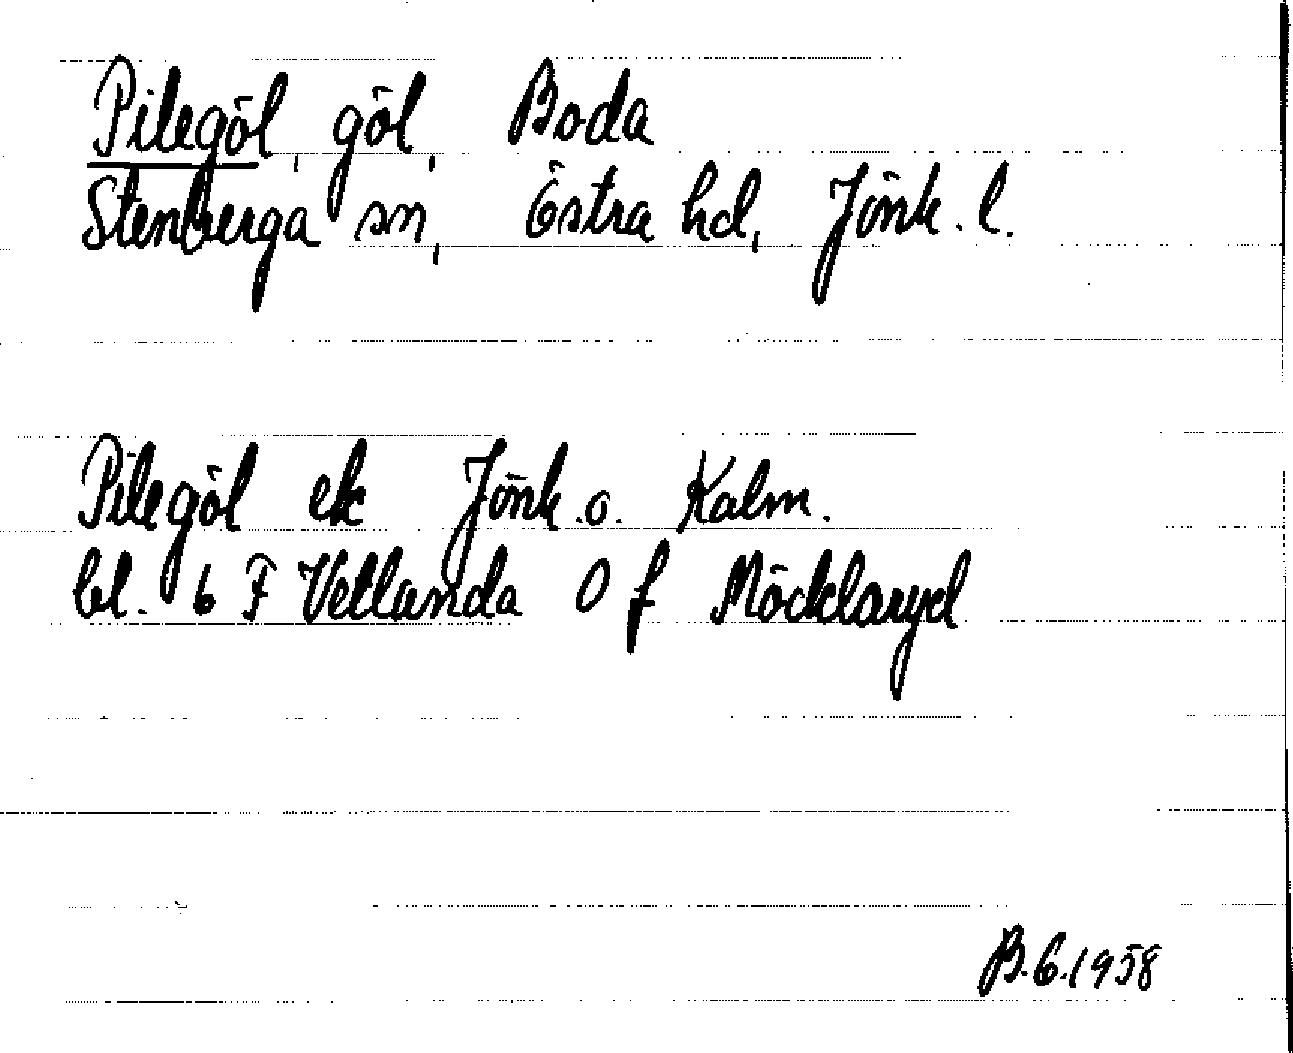 Pilegöl, göl, Boda
Stenberga sn, Östra hd, Jönk. l.
Pilegöl ek Jönk. o. Kalm.
bl. 6 F Vetlanda 0 f Möcklaryd
B.G.1958